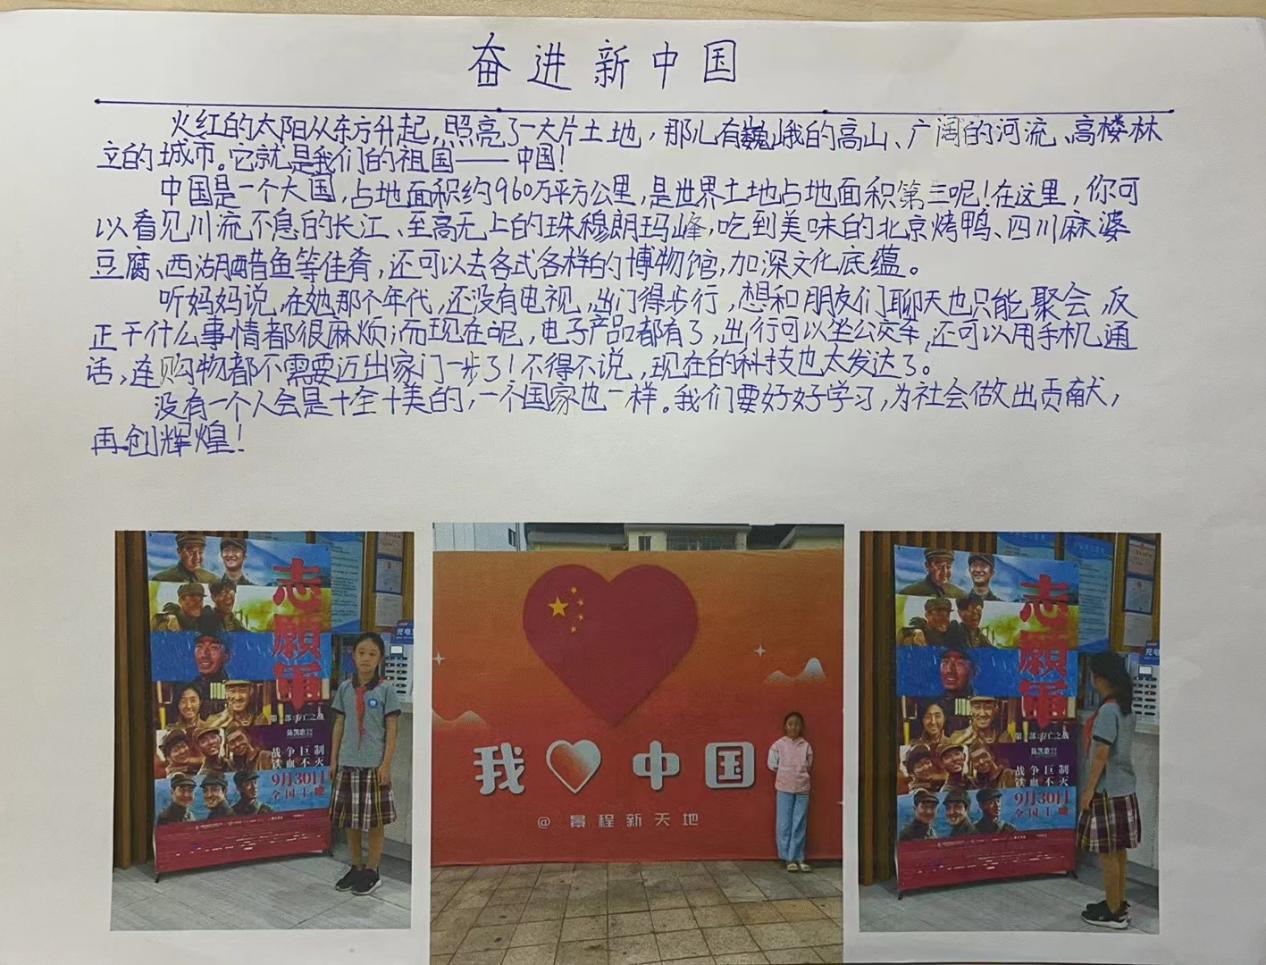 奋进新中国
火红的太阳从东方升起，照亮了一大片土地，那儿有巍峨的高山、广阔的河流、高楼林
立的城市。它就是我们的祖国——中国！
中国是一个大国，占地面积约960万平方公里，是世界土地占地面积第三呢！在这里，你可
以看见川流不息的长江、至高无上的珠穆朗玛峰，吃到美味的北京烤鸭、四川麻婆
豆腐、西湖醋鱼等佳肴，还可以去各式各样的博物馆，加深文化底蕴。
听妈妈说，在她那个年代，还没有电视，出门得步行，想和朋友们聊天也只能聚会，反
正干什么事情都很麻烦；而现在呢，电子产品都有了，出行可以坐公交车，还可以用手机通
话，连购物都不需要迈出家门一步了！不得不说，现在的科技也太发达了。
没有一个人会是十全十美的，一个国家也一样。我们要好好学习，为社会做出贡献，
再创辉煌！
志愿军
陈凯歌
战争巨制
铁血不灭
9月30日
全国上映
我 中国
@景程新天地
志愿军
陈凯歌
战争巨制
铁血不灭
9月30日
全国上映